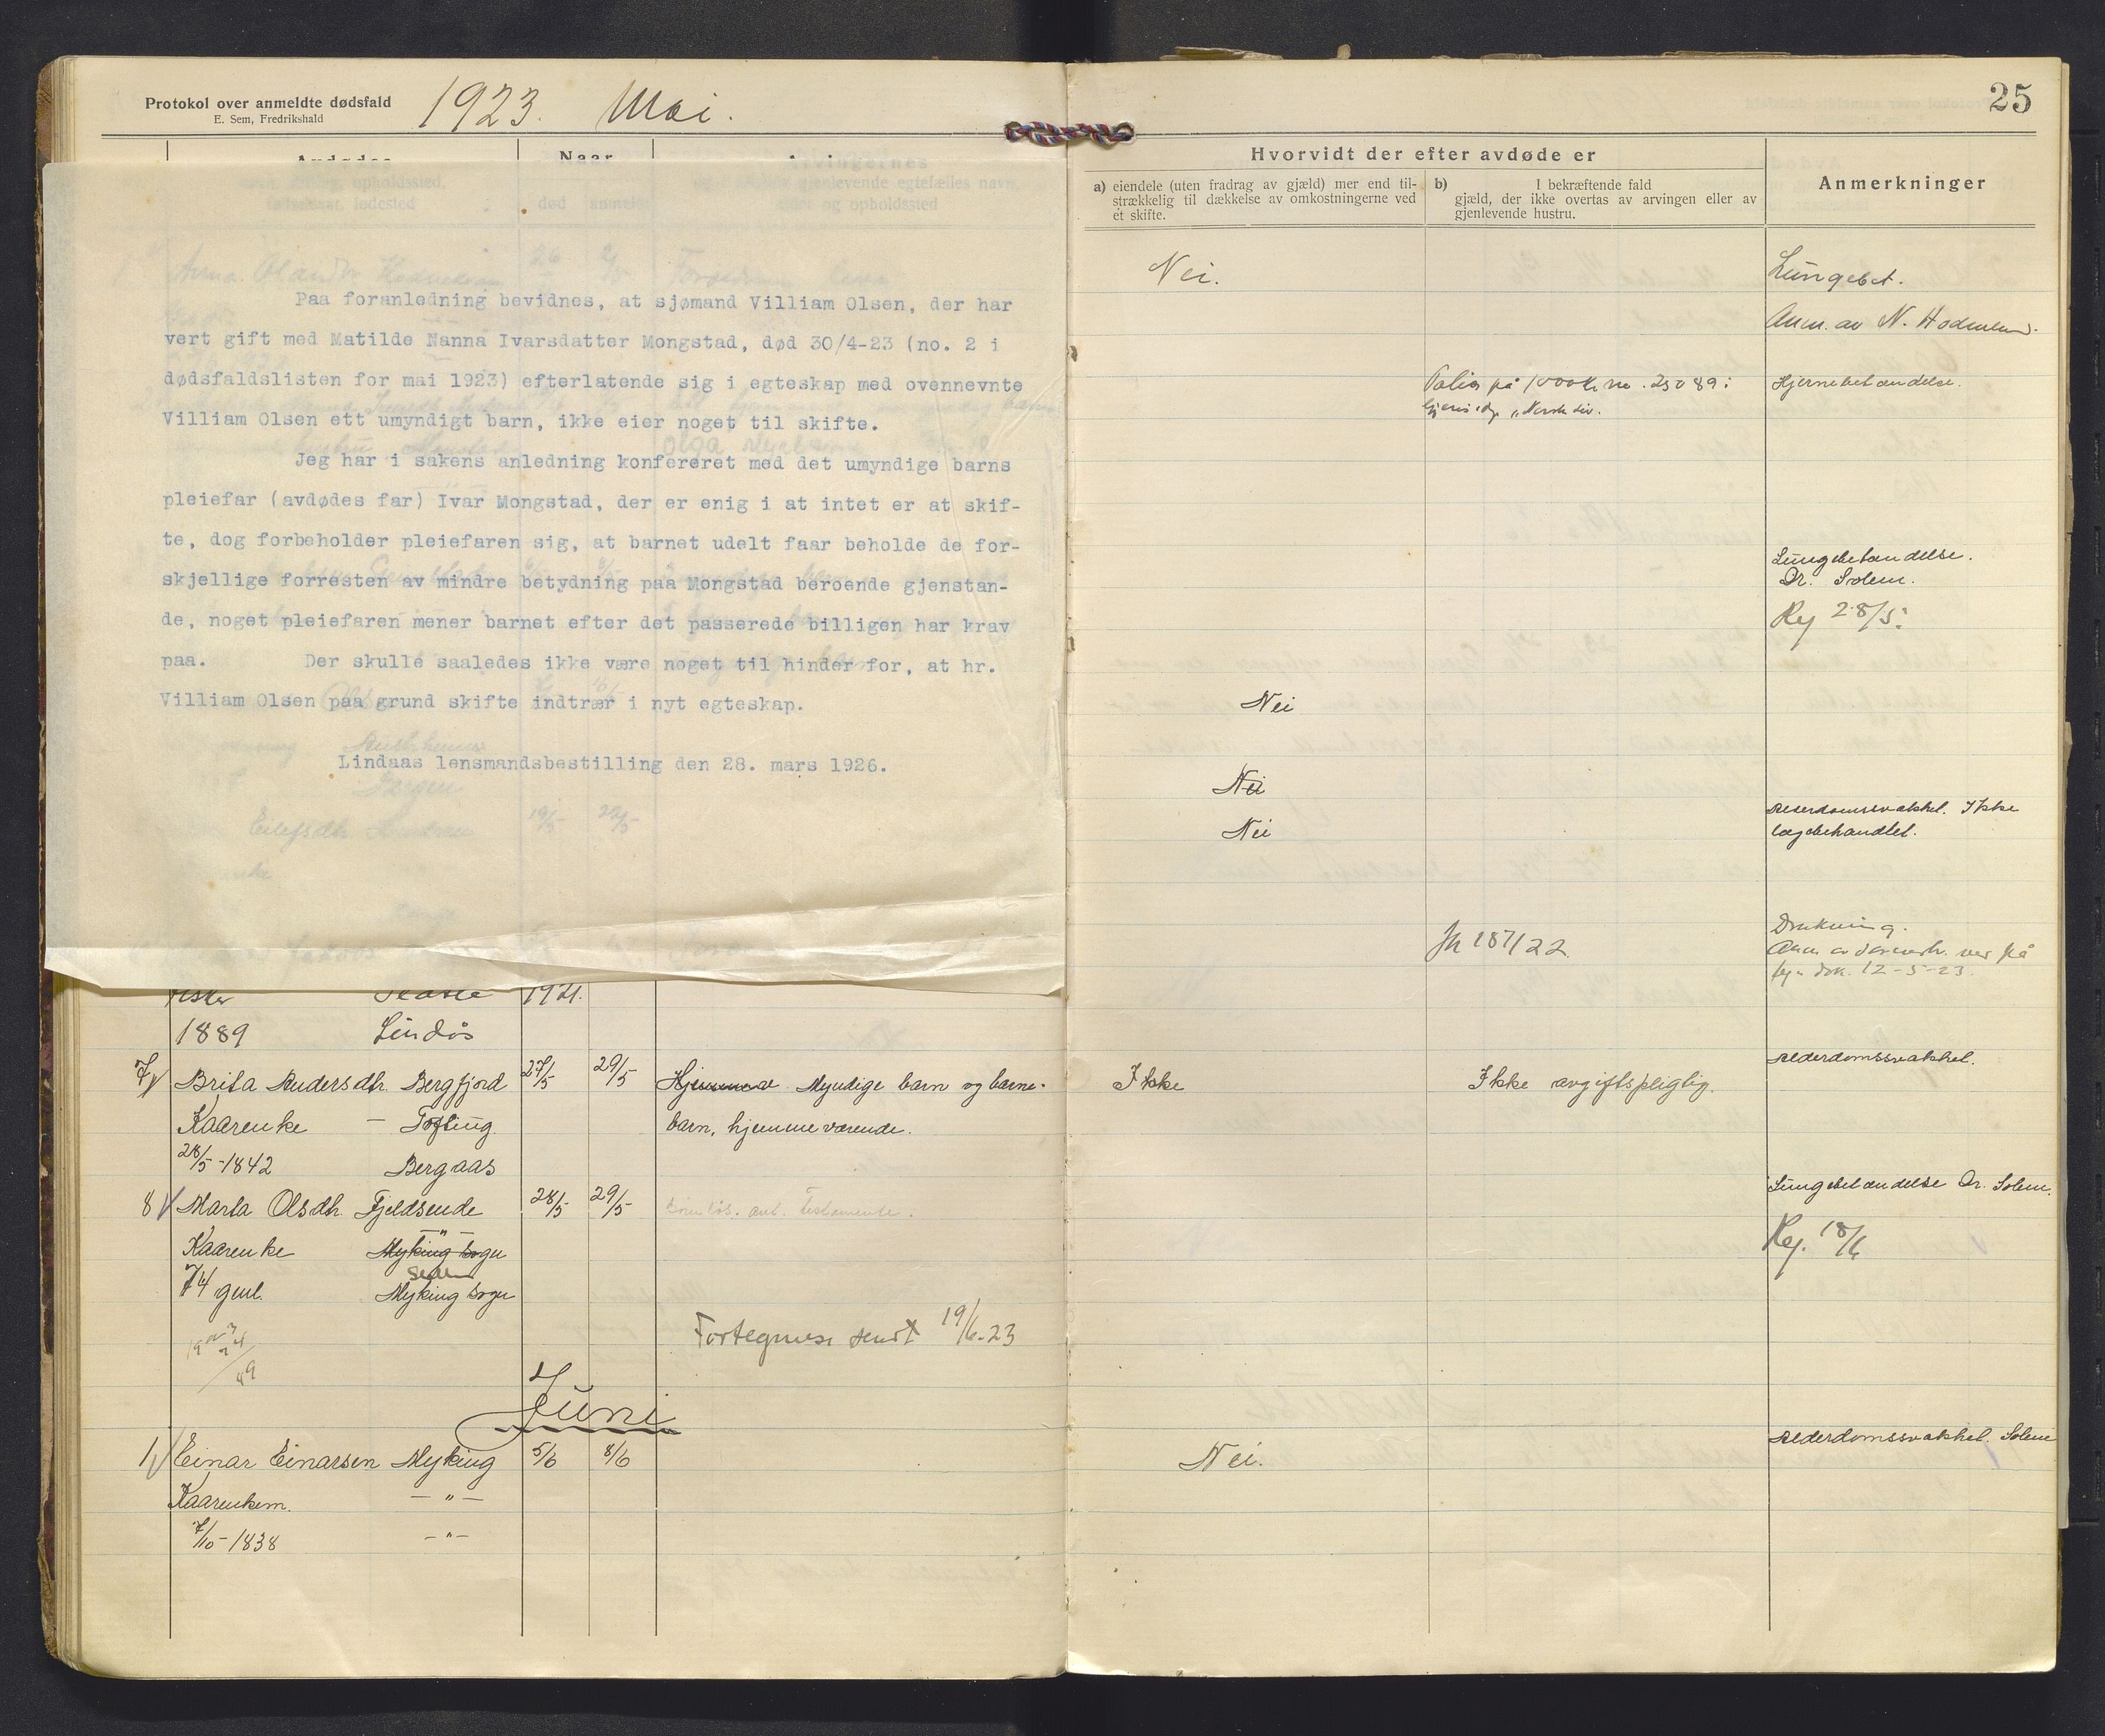 Protokol over anmeldte dødsfald
E. Sem, Fredrikshald
1923. Mai.
Paa foranledning bevidnes, at sjømand Villiam Olsen, der har
vert gift med Matilde Nanna Ivarsdatter Mongstad, død 30/4-23 (no. 2 i
dødsfaldslisten for mai 1923) efterlatende sig i egteskap med ovennevnte
Villiam Olsen ett umyndigt barn, ikke eier noget til skifte.
Jeg har i sakens anledning konfereret med det umyndige barns
pleiefar (avdødes far) Ivar Mongstad, der er enig i at intet er at skif-
te, dog forbeholder pleiefaren sig, at barnet udelt faar beholde de for-
skjellige forresten av mindre betydning paa Mongstad beroende gjenstan-
de, noget pleiefaren mener barnet efter det passerede billigen har krav
paa. Der skulle saaledes ikke være noget til hinder for, at hr.
Villiam Olsen paa grund skifte indtrær i nyt egteskap.
Lindaas lensmandsbestilling den 28. mars 1926.
1921.
1889 Lindås
7 Brita Andersdtr. Bergfjord 27/5 29/5 Hjemmev Myndige barn og barne-
Kaarenke Tofting barn, hjemmeværende.
28/5-1842 Bergaas
8 Marta Olsdtr. Fjeldsende 28/5 29/5 Barnløs. ant. Testamente.
Kaarenke — " — Myking sogn
74 gml. Seim Myking sogn
Fortegnelse sendt 19/6-23
Juni
1 Einar Einarsen Myking 5/6 8/6
Kaarenkem. — " —
7/10-1838 — " —
25
Hvorvidt der efter avdøde er
Anmerkninger
a) eiendele (uten fradrag av gjæld) mer end til-
strækkelig til dækkelse av omkostningerne ved
et skifte.
b) I bekræftende fald
gjæld, der ikke overtas av arvingen eller av
gjenlevende hustru.
Nei. Lungebet.
Anm. av N. Hodnelund.
Polise på 1000 kr no. 25089 i Hjernebetændelse.
Lungebetændelse.
Dr. Solem.
Reg 28/5.
Nei
Nei
Nei Alderdomssvakhet. Ikke
lægebehandlet.
187/22 Drukning.
12-5-23.
Ikke Ikke avgiftspligtig. Alderdomssvakhet.
Lungebetændelse Dr. Solem.
Reg. 18/6
Nei. Alderdomssvakhet. Solem